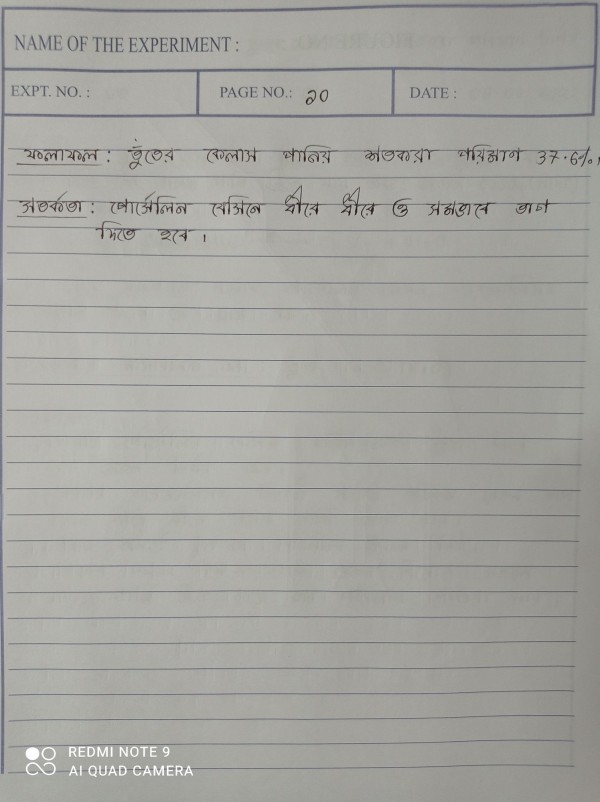 NAME OF THE EXPERIMENT :
EXPT. NO. :
PAGE NO.: 20
DATE :
ফলাফল : তুঁতের কেলাস পানির শতকরা পরিমাণ 37.6%।
সতর্কতা : পোর্সেলিন বেসিনে ধীরে ধীরে ও সমভাবে তাপ
দিতে হবে।
REDMI NOTE 9
AI QUAD CAMERA